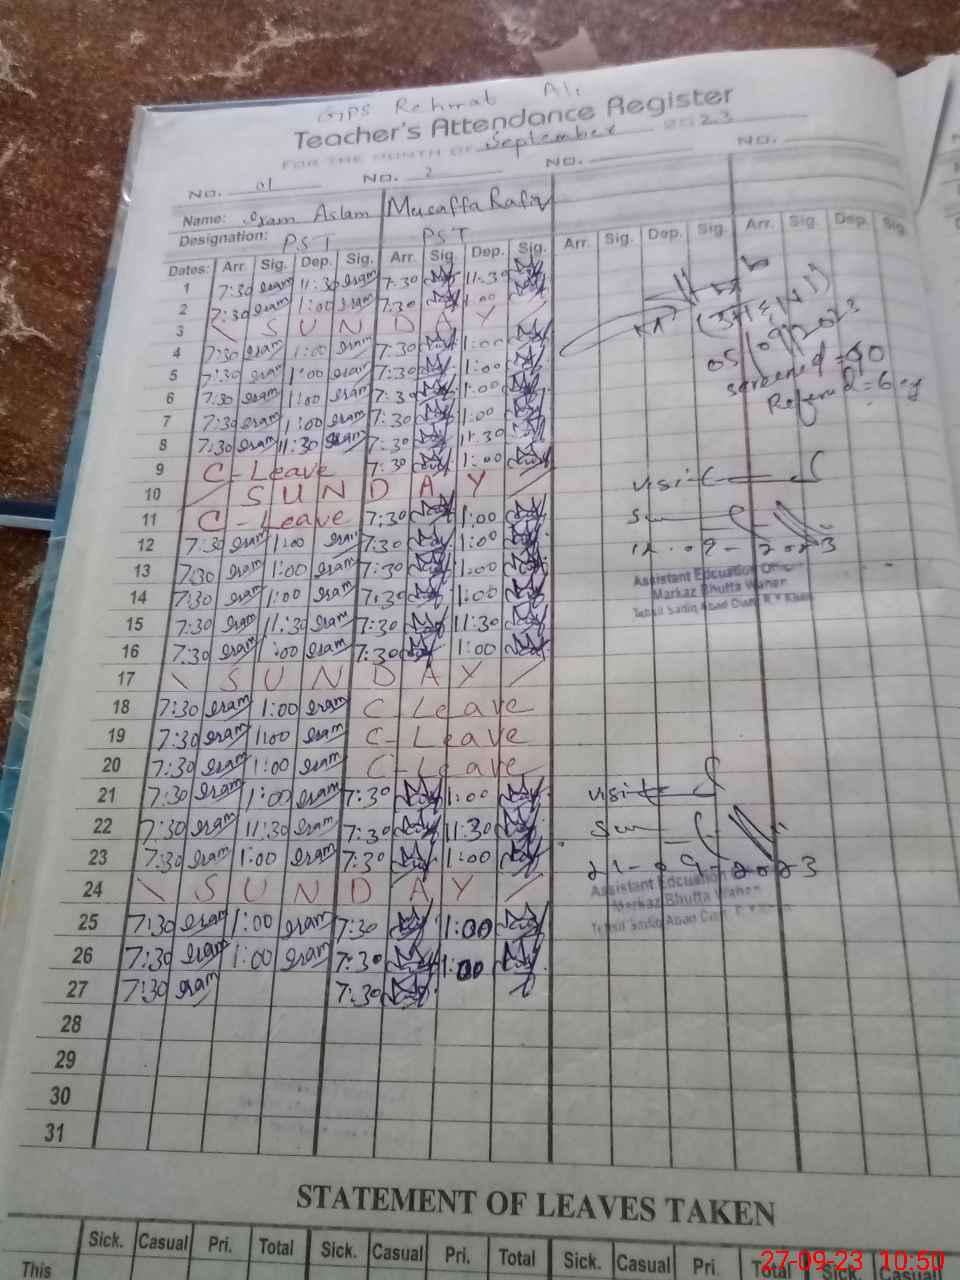 GPS Rehmat Ali
Teacher's Attendance Register
FOR THE MONTH OF September 2023
NO. 01 NO. 2 NO. NO.
Name: Iram Aslam Mucaffa Rafiq
Designation: PST PST
Dates: Arr. Sig. Dep. Sig. Arr. Sig. Dep. Sig. Arr. Sig. Dep. Sig. Arr. Sig. Dep. Sig.
1 7:30 Iram 11:30 Iram 7:30 11:30
2 7:30 Iram 1:00 Iram 7:30 1:00
3 \ S U N D A Y /
4 7:30 Iram 1:00 Iram 7:30 1:00
5 7:30 Iram 1:00 Iram 7:30 1:00
6 7:30 Iram 1:00 Iram 7:30 1:00
7 7:30 Iram 1:00 Iram 7:30 1:00
8 7:30 Iram 11:30 Iram 7:30 11:30
9 C-Leave 7:30 1:00
10 / S U N D A Y /
11 C-Leave 7:30 1:00
12 7:30 Iram 1:00 Iram 7:30 1:00
13 7:30 Iram 1:00 Iram 7:30 1:00
14 7:30 Iram 1:00 Iram 7:30 1:00
15 7:30 Iram 11:30 Iram 7:30 11:30
16 7:30 Iram 1:00 Iram 7:30 1:00
17 \ S U N D A Y /
18 7:30 Iram 1:00 Iram C-Leave
19 7:30 Iram 1:00 Iram C-Leave
20 7:30 Iram 1:00 Iram C-Leave
21 7:30 Iram 1:00 Iram 7:30 1:00
22 7:30 Iram 11:30 Iram 7:30 11:30
23 7:30 Iram 1:00 Iram 7:30 1:00
24 \ S U N D A Y /
25 7:30 Iram 1:00 Iram 7:30 1:00
26 7:30 Iram 1:00 Iram 7:30 1:00
27 7:30 Iram 7:30
28
29
30
31
(SH&NS)
05/09/2023
Screened = 40
Referred = 6
visit
12-09-2023
Assistant Edcuation Officer
Markaz Bhutta Wahen
Tehsil Sadiq Abad Distt. R.Y Khan
visit
21-09-2023
Assistant Edcuation
Markaz Bhutta Wahen
Tehsil Sadiq Abad Distt. R.Y Khan
STATEMENT OF LEAVES TAKEN
Sick. Casual Pri. Total Sick. Casual Pri. Total Sick. Casual Pri. Total Sick. Casual
This
27-09-23 10:50